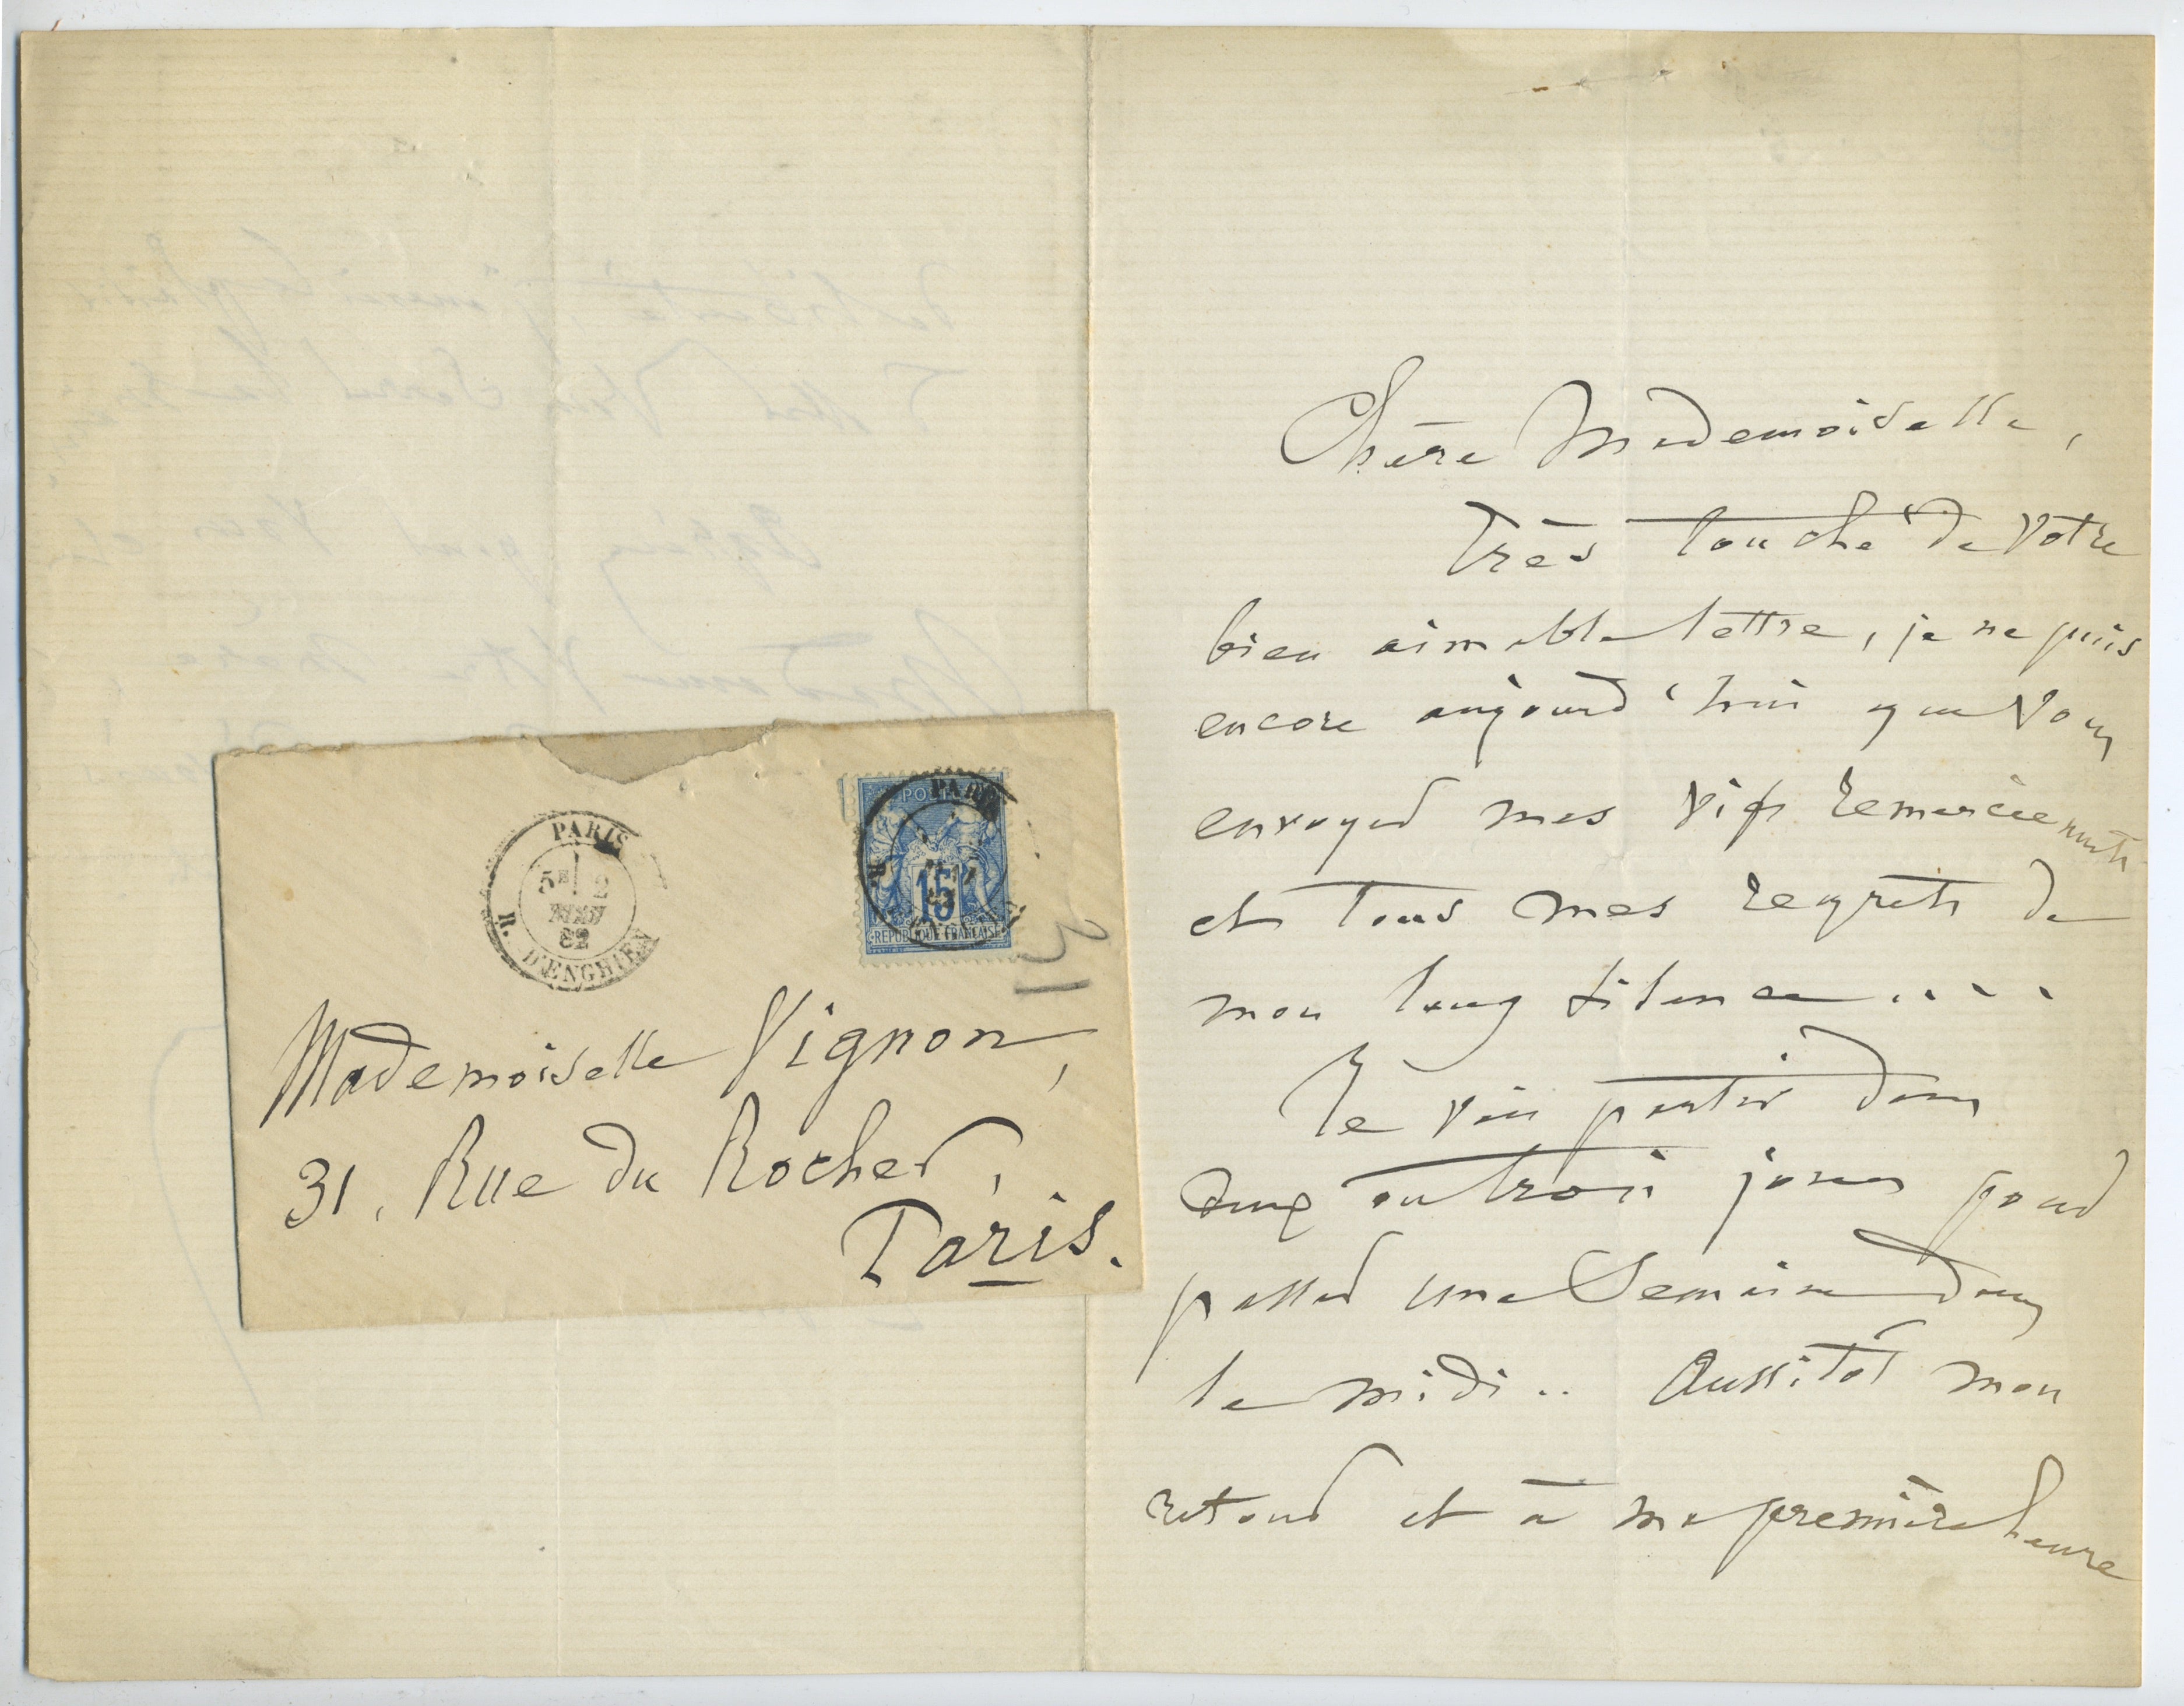 Chère Mademoiselle,
Très touché de votre
bien aimable lettre, je ne puis
encore aujourd'hui que vous
envoyer mes vifs remerciements
et tous mes regrets de
mon long silence....
Je vais partir dans
deux ou trois jours pour
passer une Semaine dans
le midi.. Aussitôt mon
retour et à ma première heure
PARIS
5E 2
82
R. D'ENGHIEN
POSTES
PARIS
15
REPUBLIQUE FRANCAISE
31
Mademoiselle Vignon,
31, Rue du Rocher,
Paris.